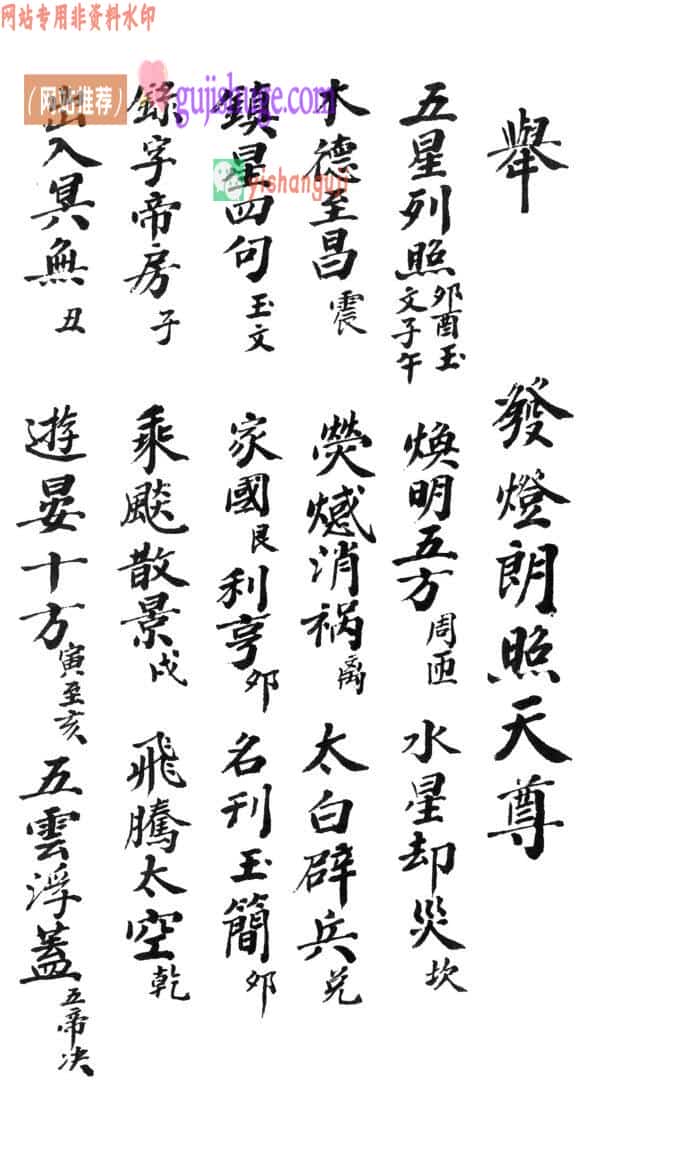 网站专用非资料水印
（网站推荐）
gujishuge.com
yishanguji
舉 發燈朗照天尊
五星列照 卯酉玉文子午 煥明五方 周匝 水星却災 坎
木德至昌 震 熒惑消禍 离 太白辟兵 兑
鎮星四句 玉文 家國 艮 利亨 卯 名刊玉簡 卯
錄字帝房 子 乘飈散景 戌 飛騰太空 乾
出入冥無 丑 遊晏十方 寅至亥 五雲浮蓋 五帝决